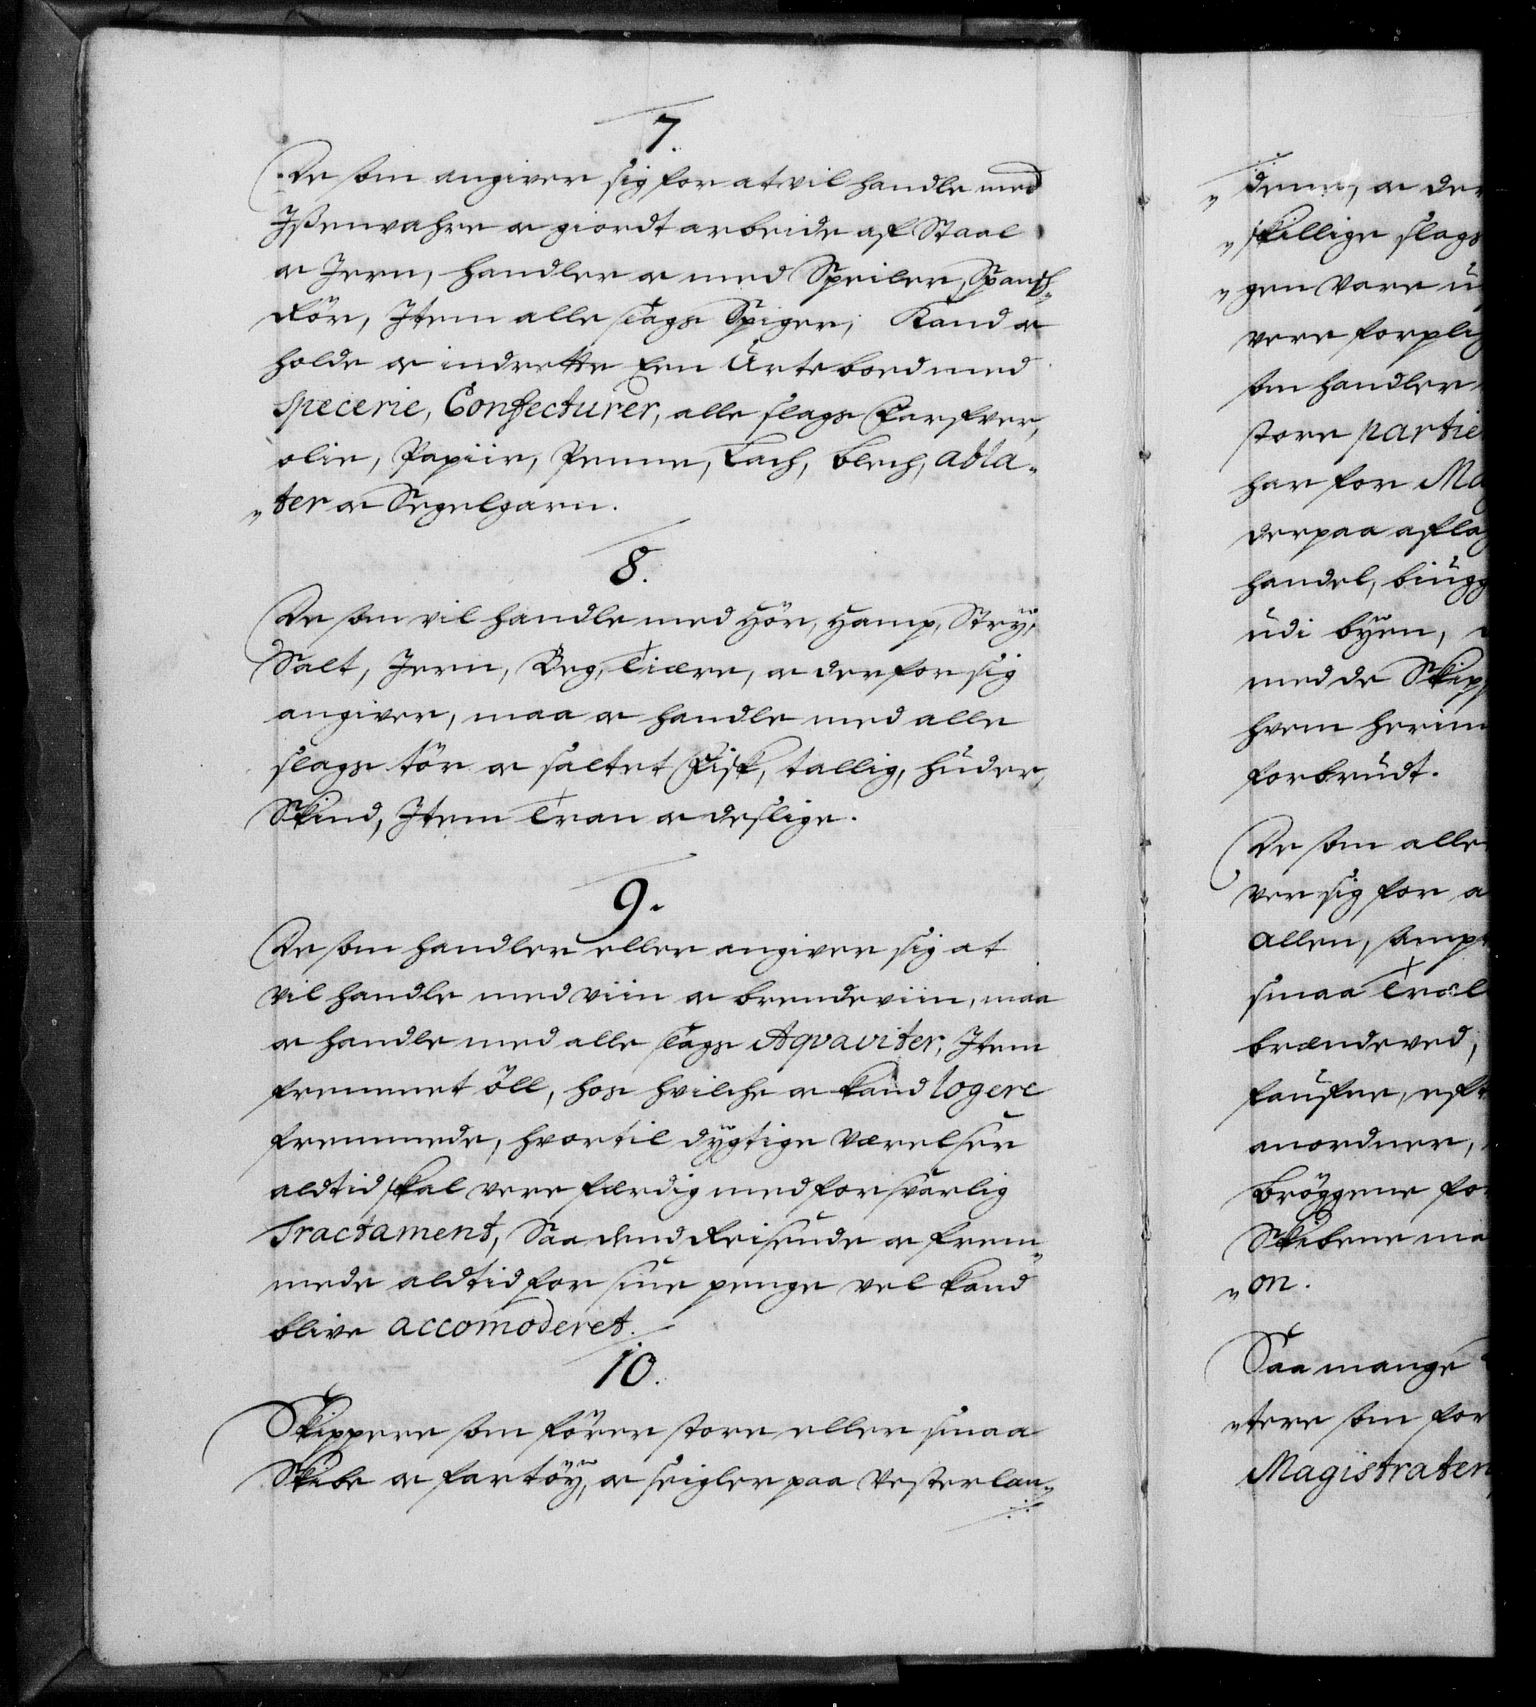 7.
De som angiver sig for at vil handle med
Isenvahre og giordt arbeide af Staal
og Jern, handler og med Speiler, Spansk
Rör, Item alle slags Spiger; Kand og
holde og indrette Een Urtebod med
Specerie, Confecturer, alle slags Farfver,
olie, Papiir, Penne, Lach, blech, abla„
„ter og Segelgarn.
8.
De som vil handle med Hör, Hamp, Strÿ,
Salt, Jern, Beg, Tiære, og derfor sig
angiver, maa og handle med alle
slags tör og saltet Fisk, tallig, huder,
Skind, Item Tran og deslige.
9.
De som handler eller angiver sig at
vil handle med viin og brendeviin, maa
og handle med alle slags Aqvaviter, Item
fremmet öll, hos hvilche og kand logere
fremmede, hvortil dÿgtige Værelser
altid skal vere færdig med forsvarlig
Tractament, Saa dend Reisende og frem„
mede altid for sine penge vel kand
blive accomoderet.
10.
Skippere som förer store eller smaa
Skibe og fartöÿ, og seigler paa Vesterlan„
„denne, og der
„skillige slags
„gen Vare u
vere forplig
som handler
store partie
har for Ma
derpaa aflag
handel, biugg
udi bÿen,
med de Skip
hvem herim
forbrudt.
De som alle
ver sig for a
allen, samp
smaa Træl
brændeved,
eft
anordner,
bröggene for
Skibene ma
„on.
Saa mange
„tere som for
Magistraten